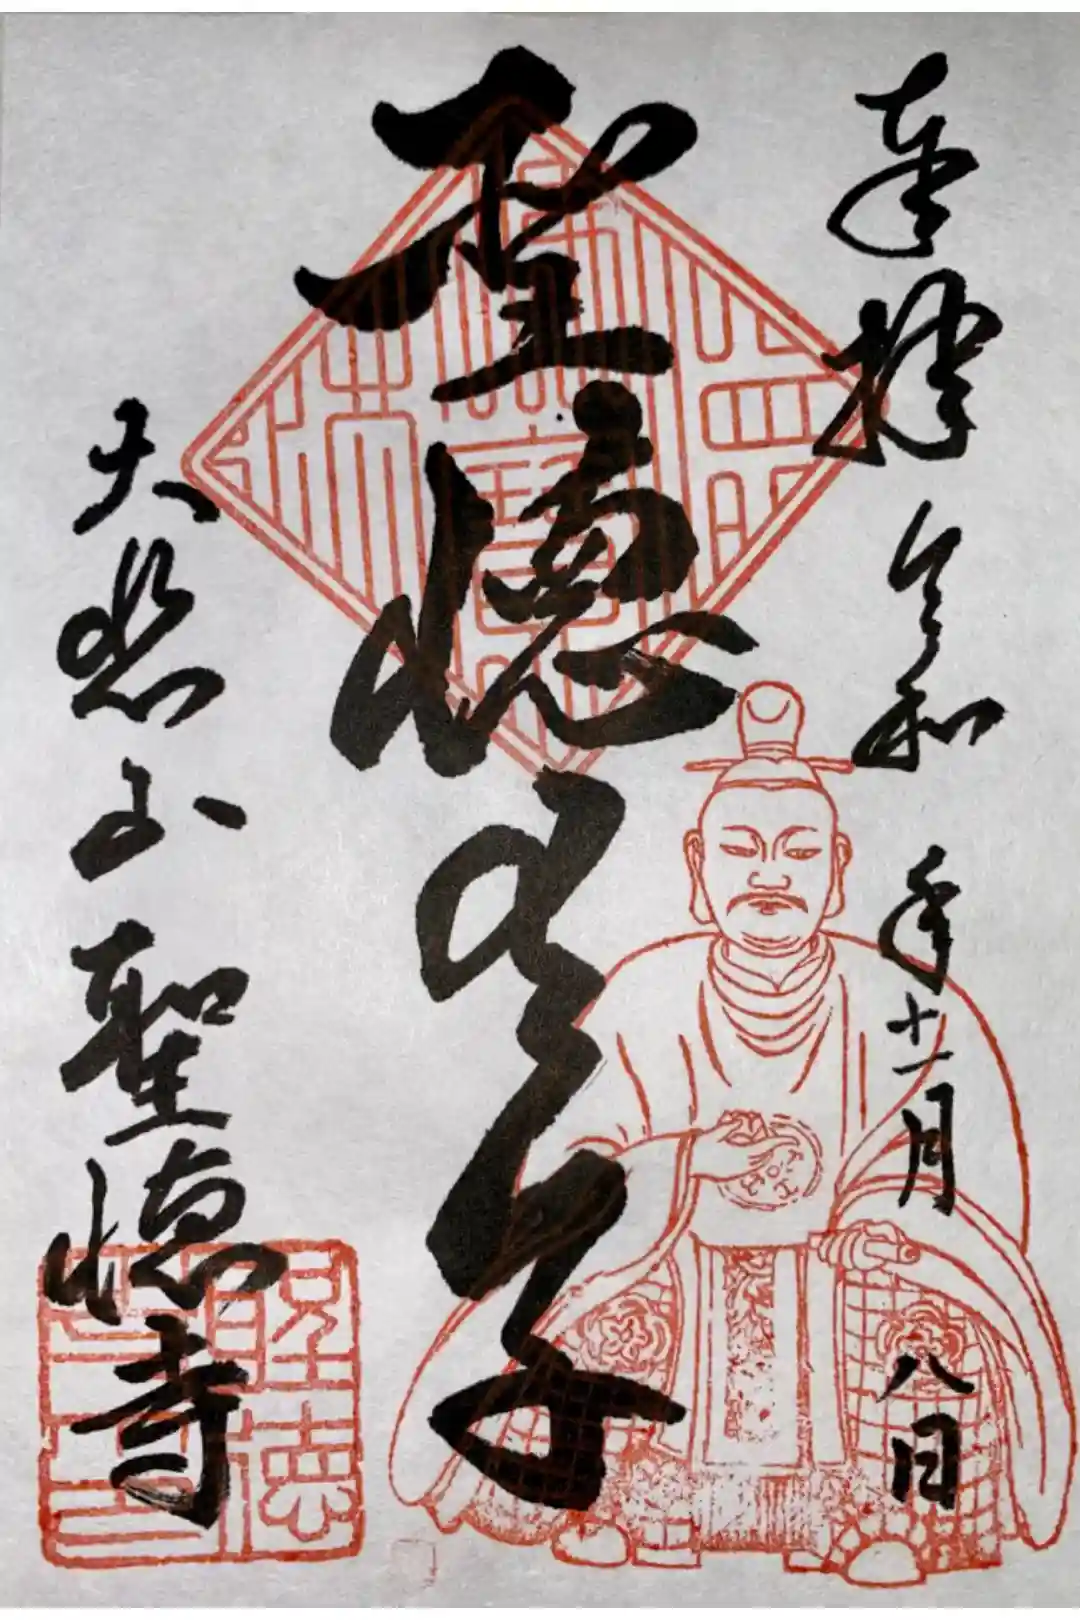 奉拝 令和 年十一月 八日
聖徳太子
大悲山 聖徳寺